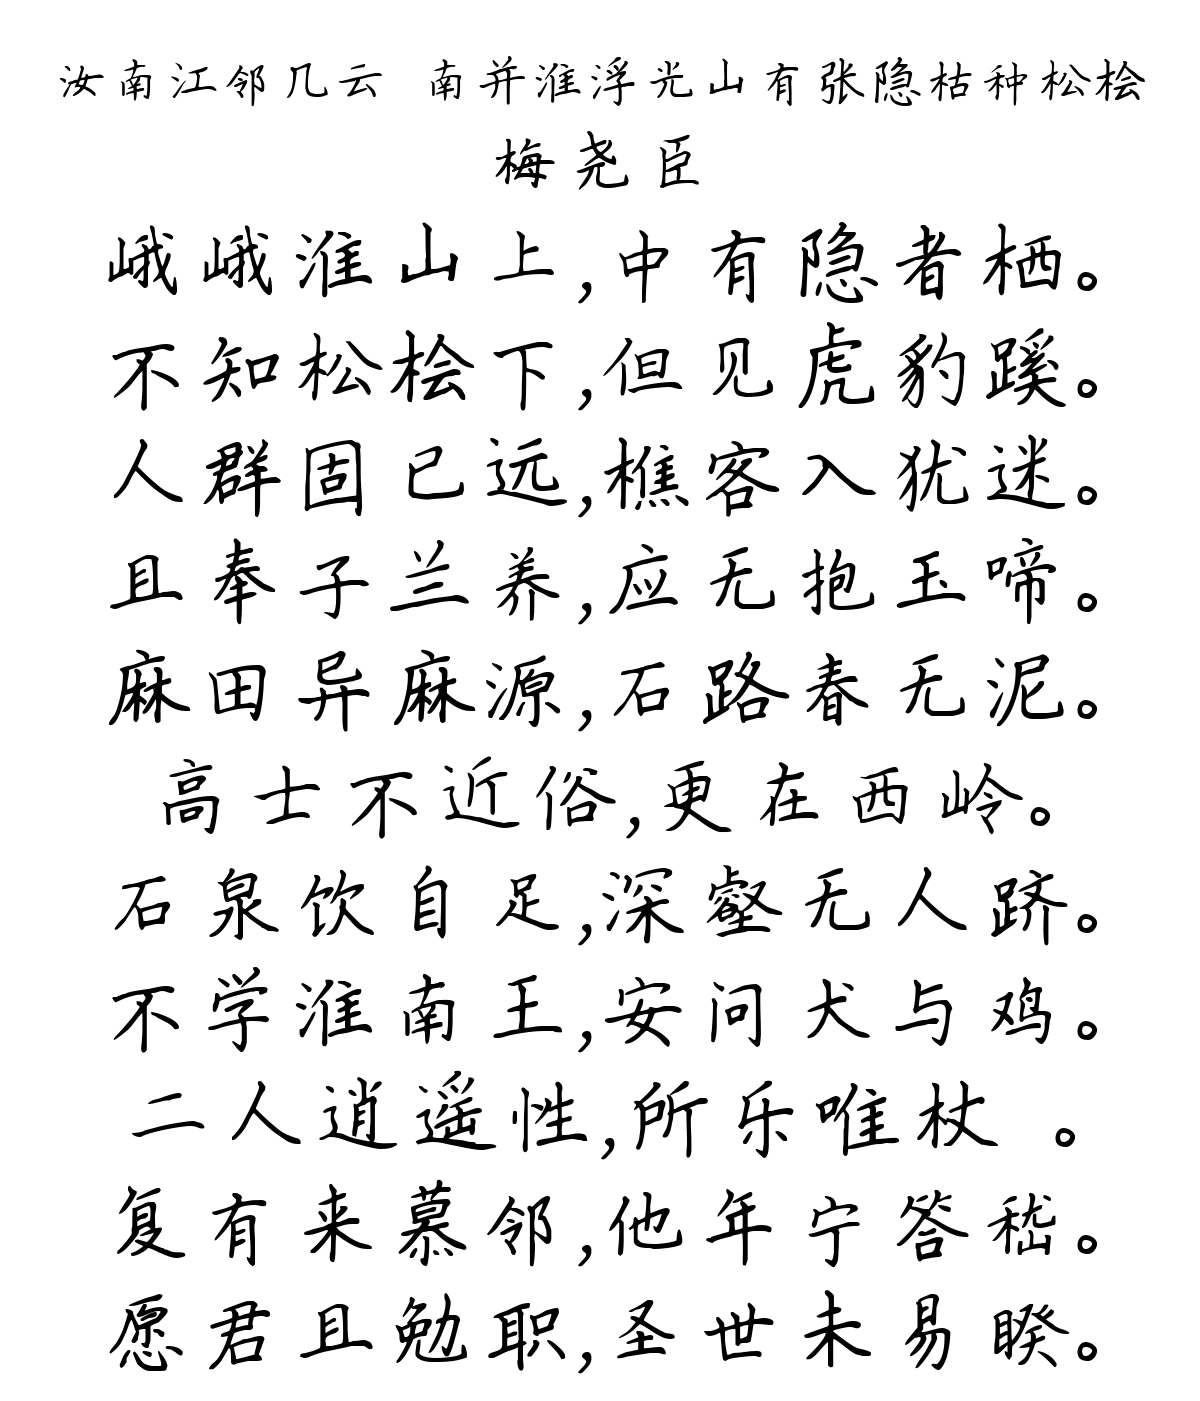 汝南江邻几云 南并淮浮光山有张隐枯种松桧
梅尧臣
峨峨淮山上,中有隐者栖。
不知松桧下,但见虎豹蹊。
人群固已远,樵客入犹迷。
且奉子兰养,应无抱玉啼。
麻田异麻源,石路春无泥。
高士不近俗,更在西岭。
石泉饮自足,深壑无人跻。
不学淮南王,安问犬与鸡。
二人逍遥性,所乐唯杖 。
复有来慕邻,他年宁答嵇。
愿君且勉职,圣世未易睽。